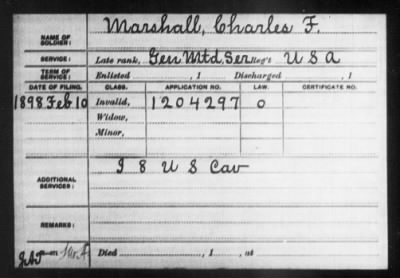 NAME OF SOLDIER: Marshall, Charles F.
SERVICE: Late rank, Gen Mtd. Ser Reg't U S A
TERM OF SERVICE: Enlisted , 1 Discharged , 1
DATE OF FILING. CLASS. APPLICATION NO. LAW. CERTIFICATE NO.
1898 Feb 10 Invalid, 1204297 o
Widow,
Minor,
ADDITIONAL SERVICES: I 8 U S Cav
REMARKS:
Died , 1 , at